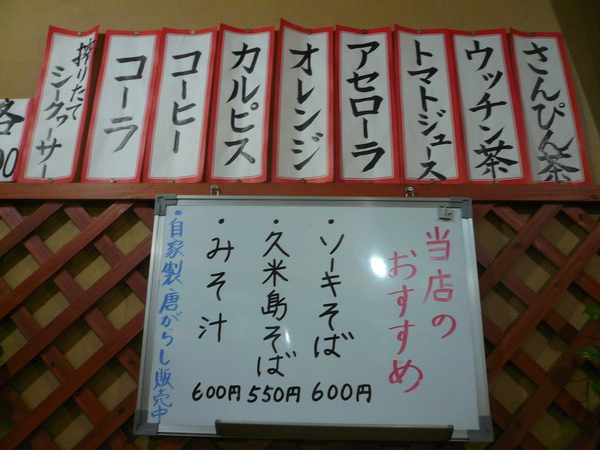 さんぴん茶
ウッチン茶
トマトジュース
アセローラ
オレンジ
カルピス
コーヒー
コーラ
搾りたて
シークヮーサー
各
00
当店の
おすすめ
・ソーキそば 600円
・久米島そば 550円
・みそ汁 600円
・自家製唐がらし販売中